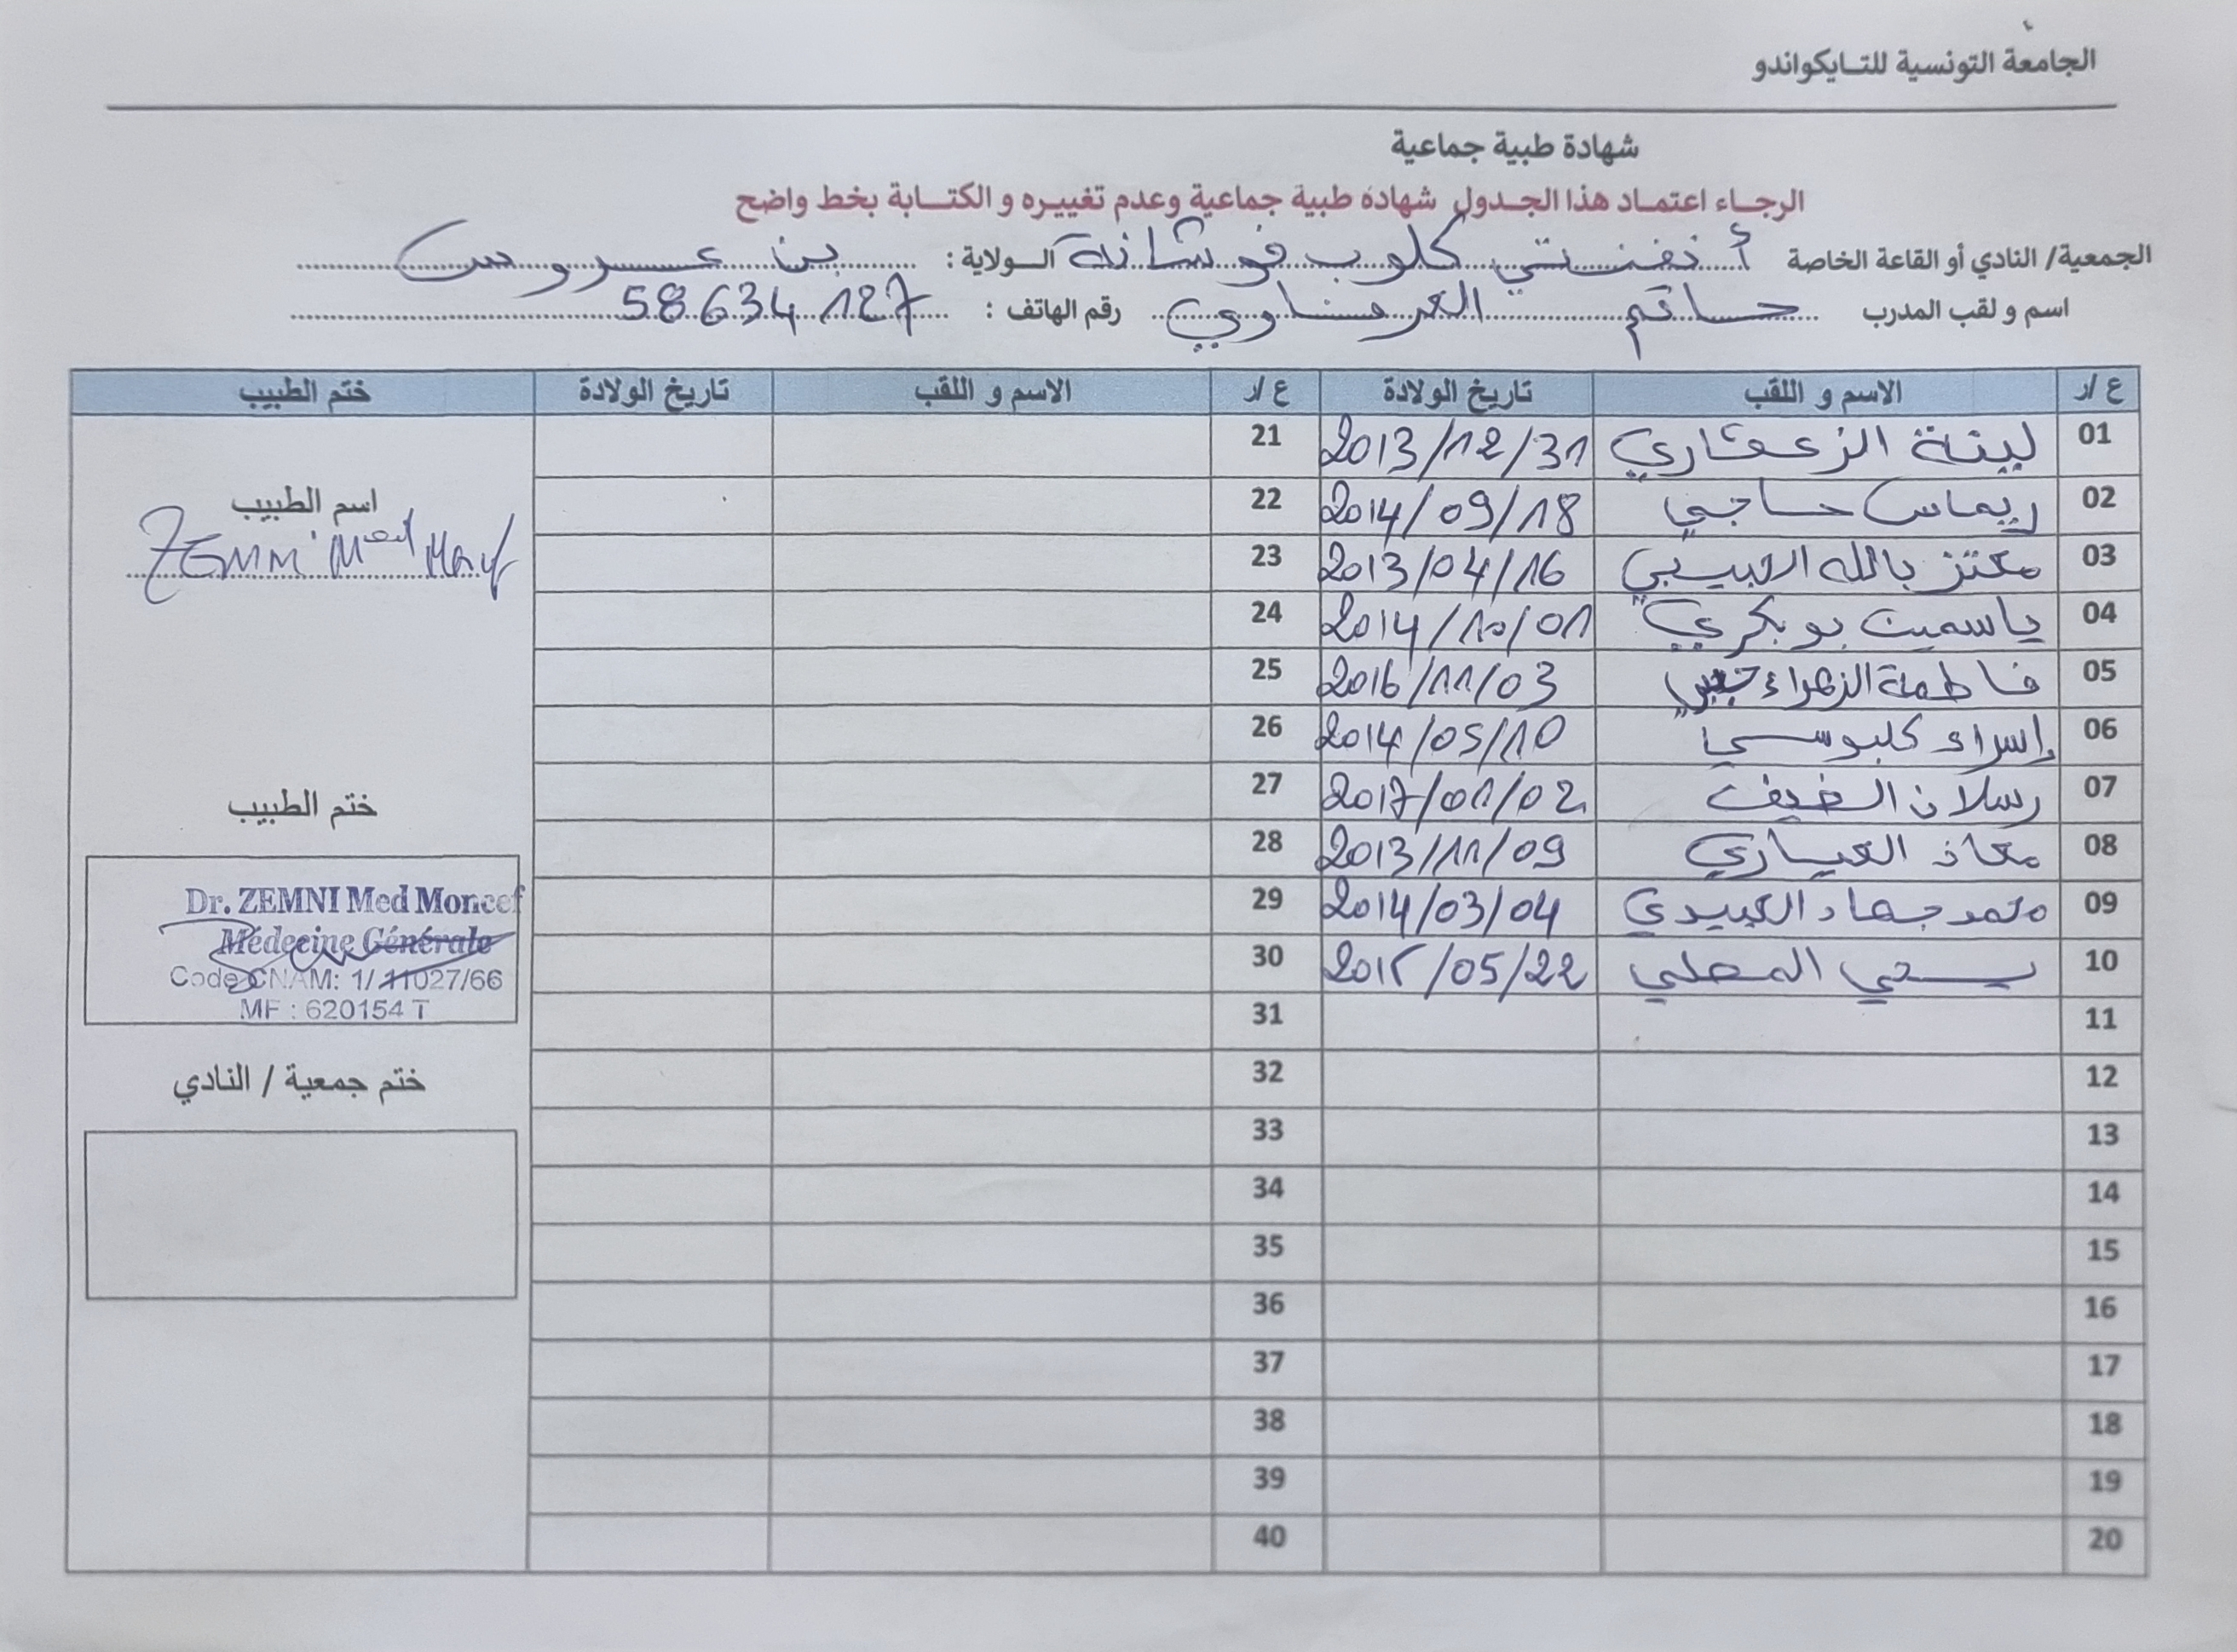 الجامعة التونسية للتايكواندو
شهادة طبية جماعية
الرجاء اعتماد هذا الجدول شهادة طبية جماعية وعدم تغييره و الكتابة بخط واضح
الجمعية/ النادي أو القاعة الخاصة أنفنتي كلوب فوشانة الولاية : بن عروس
اسم و لقب المدرب حاتم العرفاوي رقم الهاتف : 58634127
ع /ر الاسم و اللقب تاريخ الولادة ع /ر الاسم و اللقب تاريخ الولادة ختم الطبيب
01 لينة الزعقاري 2013/12/31 21
02 ريماس حاجي 2014/09/18 22
اسم الطبيب
03 معتز بالله الحبيبي 2013/04/16 23
ZEMNI Med
04 ياسمين بوبكري 2014/10/01 24
05 فاطمة الزهراء 2016/11/03 25
06 إسراء كلبوسي 2014/05/10 26
07 رسلان الضيف 2017/01/02 27
ختم الطبيب
08 معاذ العياري 2013/11/09 28
09 محمد جهاد العبيدي 2014/03/04 29
10 يحي المحلي 2015/05/22 30
Dr. ZEMNI Med Moncef
Médecine Générale
Code CNAM: 1/11027/66
MF : 620154 T
11 31
12 32
ختم جمعية / النادي
13 33
14 34
15 35
16 36
17 37
18 38
19 39
20 40